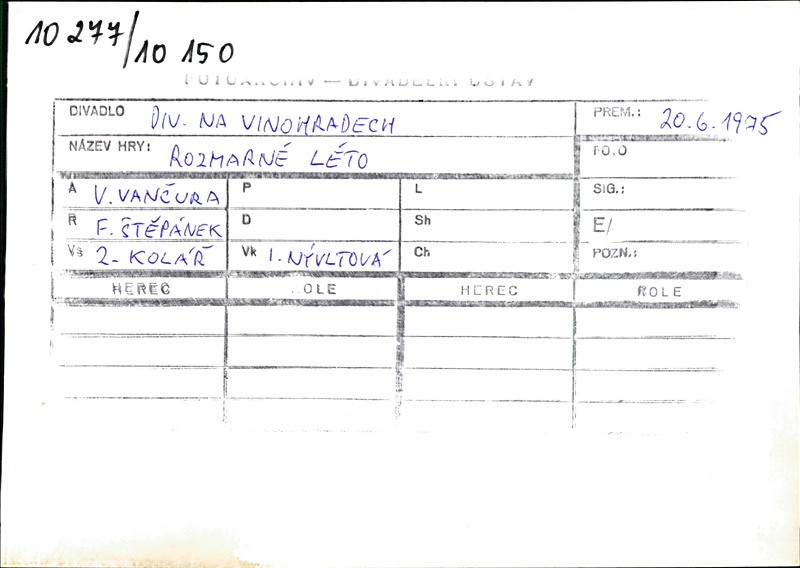 10 277/10 150
FOTOARCHIV — DIVADELNÍ ÚSTAV
DIVADLO DIV. NA VINOHRADECH PREM.: 20.6.1975
NÁZEV HRY: ROZMARNÉ LÉTO FO.O
A V. VANČURA P L SIG.:
R F. ŠTĚPÁNEK D Sh E/
Vs Z. KOLÁŘ Vk I. NÝVLTOVÁ Ch POZN.:
HEREC OLE HEREC ROLE